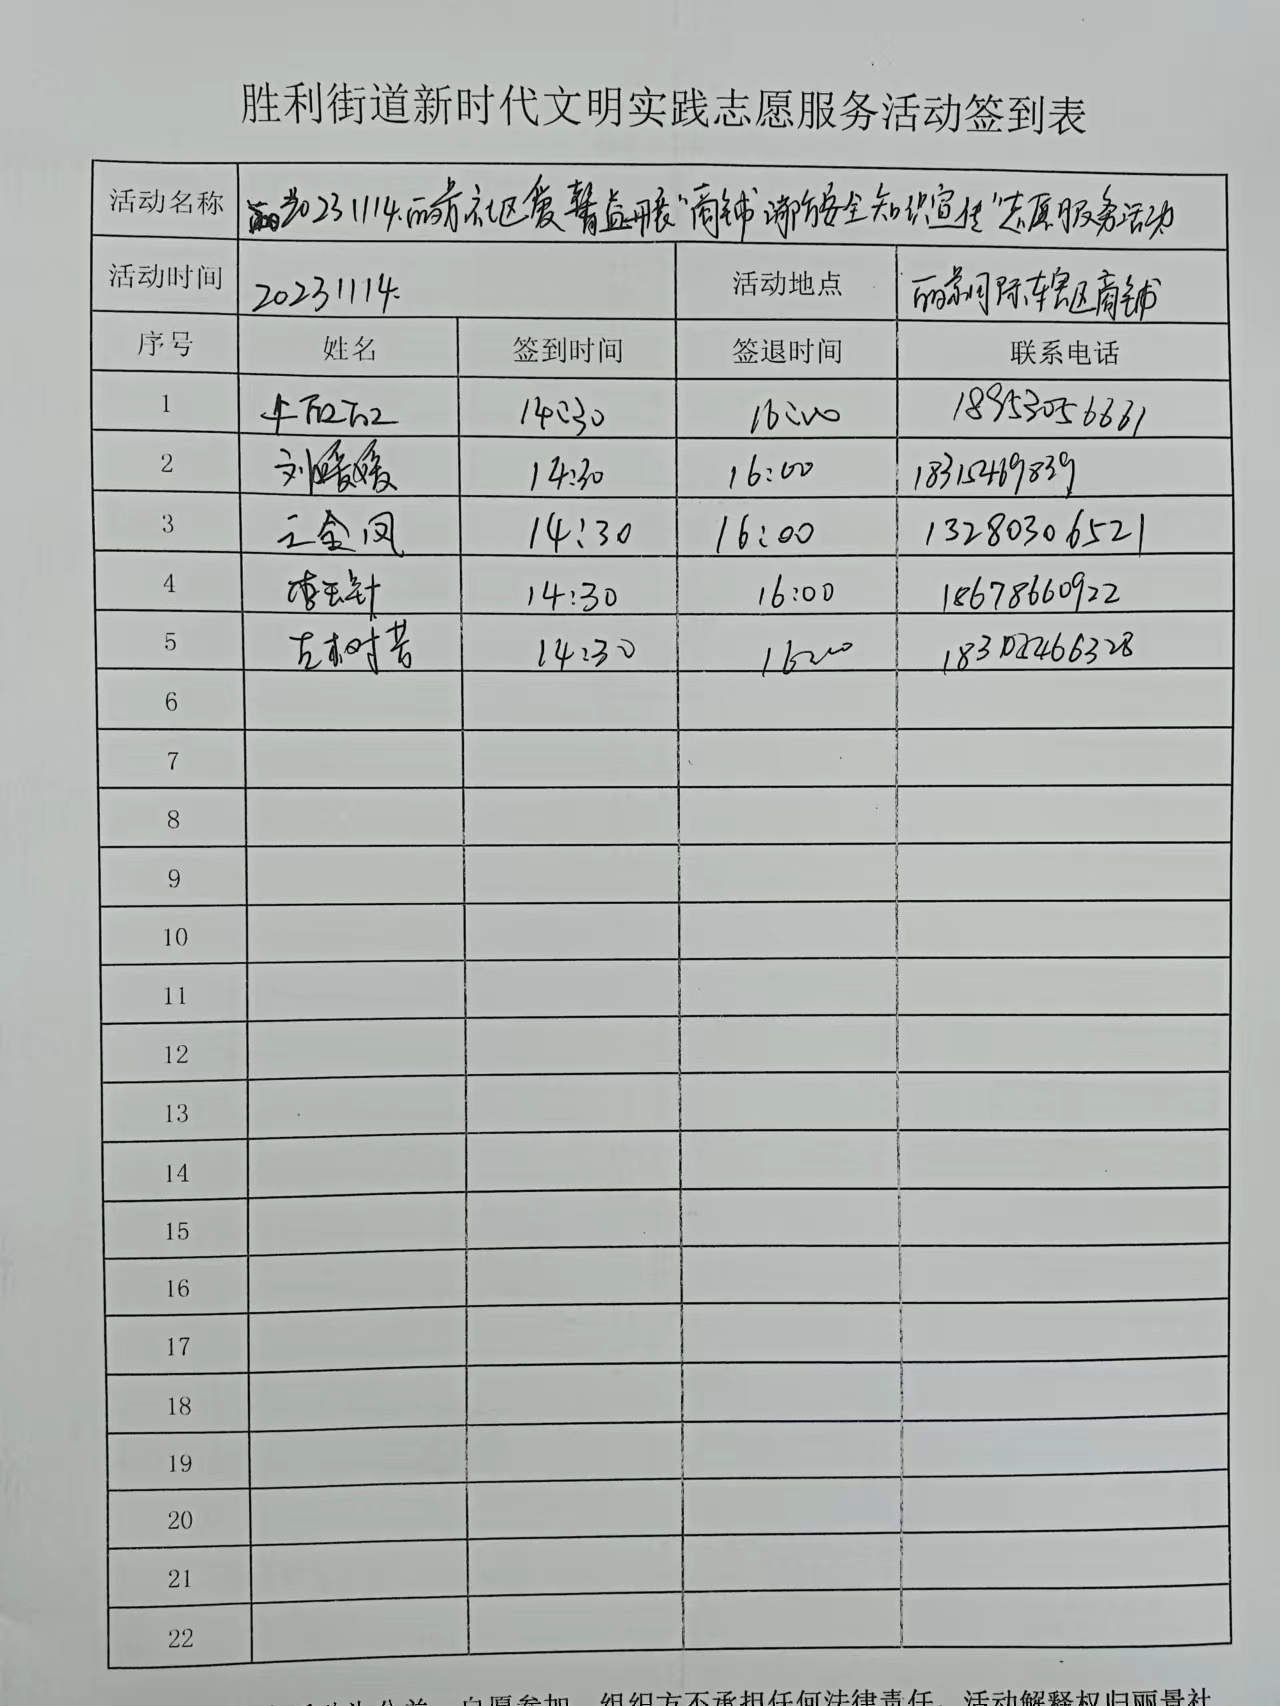 胜利街道新时代文明实践志愿服务活动签到表
活动名称 20231114.丽景社区爱馨益開展"商铺消防安全知识宣传"志愿服务活动
活动时间 20231114. 活动地点 丽景国际东辖区商铺
序号 姓名 签到时间 签退时间 联系电话
1 14:30 16:00 18953056661
2 刘暖暖 14:30 16:00 18315469839
3 王金凤 14:30 16:00 13280306521
4 李玉针 14:30 16:00 18678660922
5 14:30 16:00
6
7
8
9
10
11
12
13
14
15
16
17
18
19
20
21
22
自愿参加，组织方不承担任何法律责任。活动解释权归丽景社